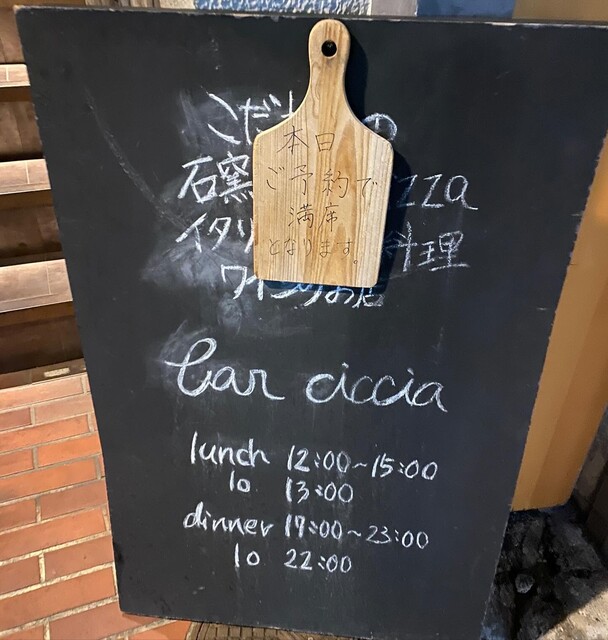 こだ
本日
石窯
ご予約で
zza
満席
イタリ
料理
となります。
ワインのお店
bar ciccia
lunch 12:00~15:00
lo 13:00
dinner 17:00~23:00
lo 22:00